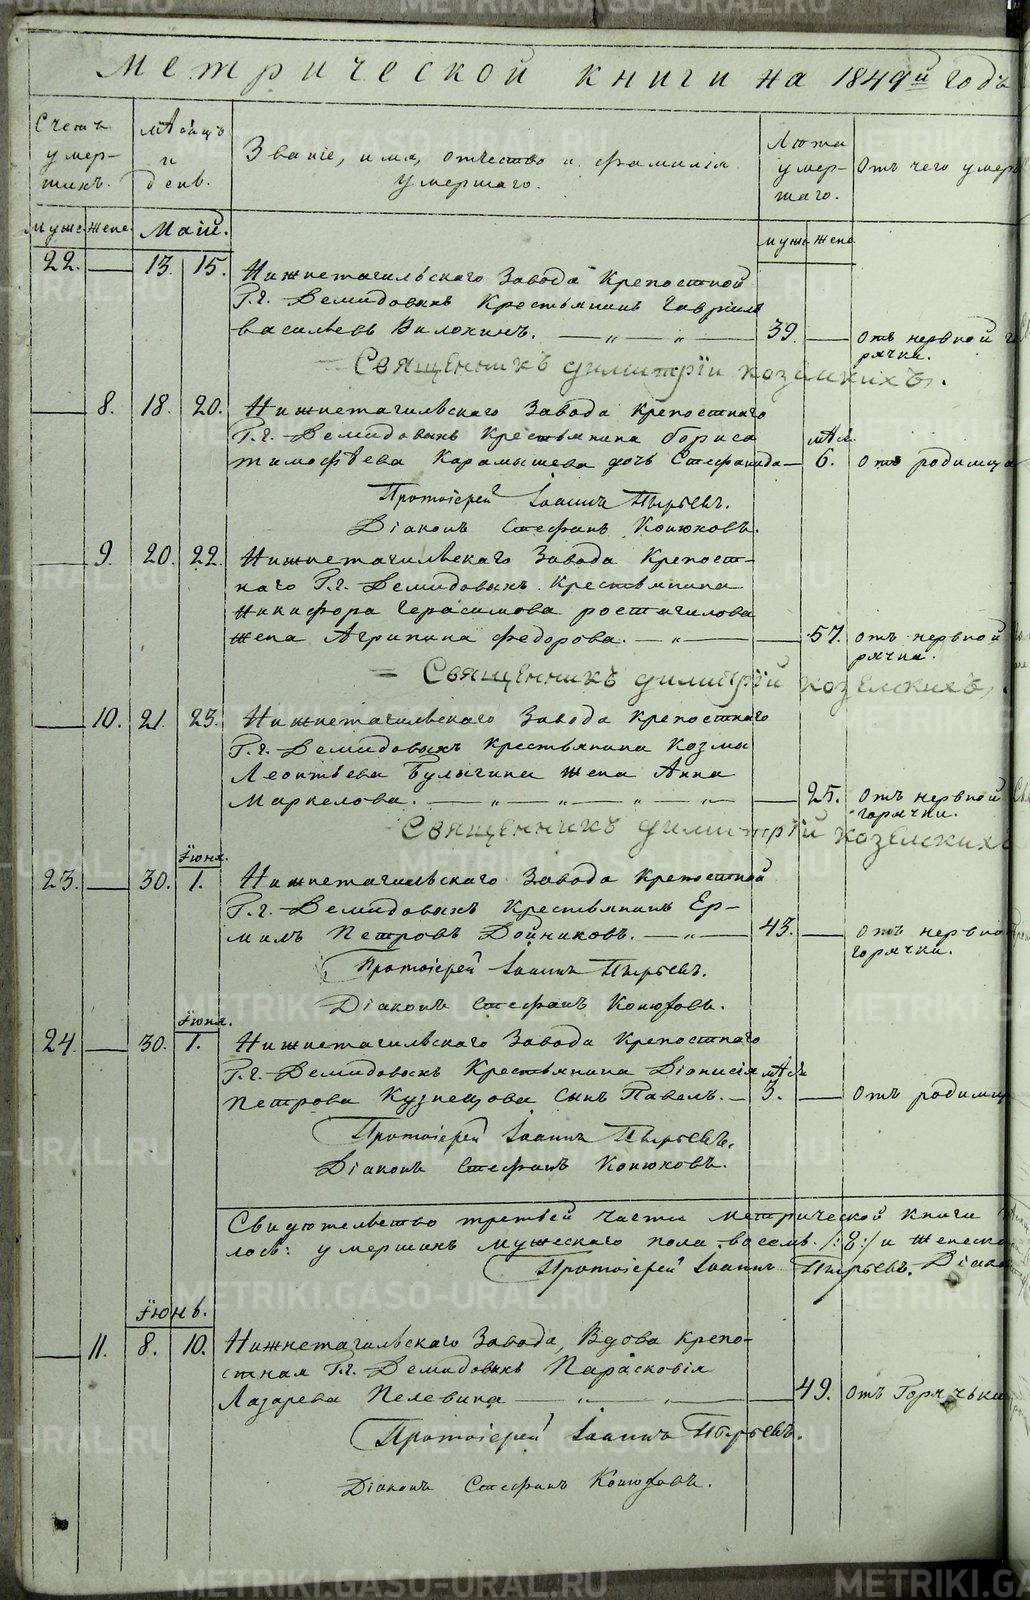 METRIKI.GASO-URAL.RU
Метрической книги на 1849й годъ
Счетъ умершихъ.
Мѣсяцъ и день.
Званіе, имя, отчество и фамилія умершаго.
Лѣта умершаго.
Отъ чего умеръ
Муже. Жене. Маій.
Муж. Жене.
22. — 13. 15. Нижнетагильскаго Завода Крепостной
Г.г. Демидовыхъ Крестьянинъ Гавріилъ
Васильевъ Вилохинъ. — „ — „ — 39. — Отъ нервной го
рячки.
= Священникъ Димитрій Козелскихъ.
— 8. 18. 20. Нижнетагильскаго Завода Крепостнаго
Г.г. Демидовыхъ Крестьянина Бориса мѣс.
Тимофѣева Карамышева дочь Стефанида — 6. Отъ родимца
Протоіерей Іоаннъ Пырьевъ.
Діаконъ Стефанъ Конюховъ.
— 9. 20. 22. Нижнетагильскаго Завода Крепост-
наго Г.г. Демидовыхъ Крестьянина
Никифора Герасимова Ростагилова
жена Агрипина Федорова. — „ — 57. отъ нервной
рячки.
= Священникъ Димитрій Козелскихъ.
— 10. 21. 23. Нижнетагильскаго Завода Крепостнаго
Г.г. Демидовыхъ Крестьянина Козмы
Леонтьева Булыгина жена Анна
Маркелова. — „ — „ — „ — „ — 25. Отъ нервной
горячки.
Священникъ Димитрій Козелскихъ
Іюня.
23. — 30. 1. Нижнетагильскаго Завода Крепостной
Г.г. Демидовыхъ Крестьянинъ Ер-
милъ Петровъ Дойниковъ. — „ — 43. — Отъ нервной
горячки.
Протоіерей Іоаннъ Пырьевъ.
Діаконъ Стефанъ Конюховъ.
Іюня.
24. — 30. 1. Нижнетагильскаго Завода Крепостнаго
Г.г. Демидовыхъ Крестьянина Діонисія мѣс.
Петрова Кузнецова сынъ Павелъ. — 3. — Отъ родимц
Протоіерей Іоаннъ Пырьевъ.
Діаконъ Стефанъ Конюховъ.
Свидѣтельство третьей части метрической книги
лось: умершихъ мужескаго пола восемь. /:8:/ и женска
Протоіерей Іоаннъ Пырьевъ. Діако
Іюнь.
— 11. 8. 10. Нижнетагильскаго Завода, Вдова крепо-
стная Г.г. Демидовыхъ Парасковія
Лазарева Пелевина — „ — „ — 49. Отъ Горячьки
Протоіерей Іоаннъ Пырьевъ.
Діаконъ Стефанъ Конюховъ.